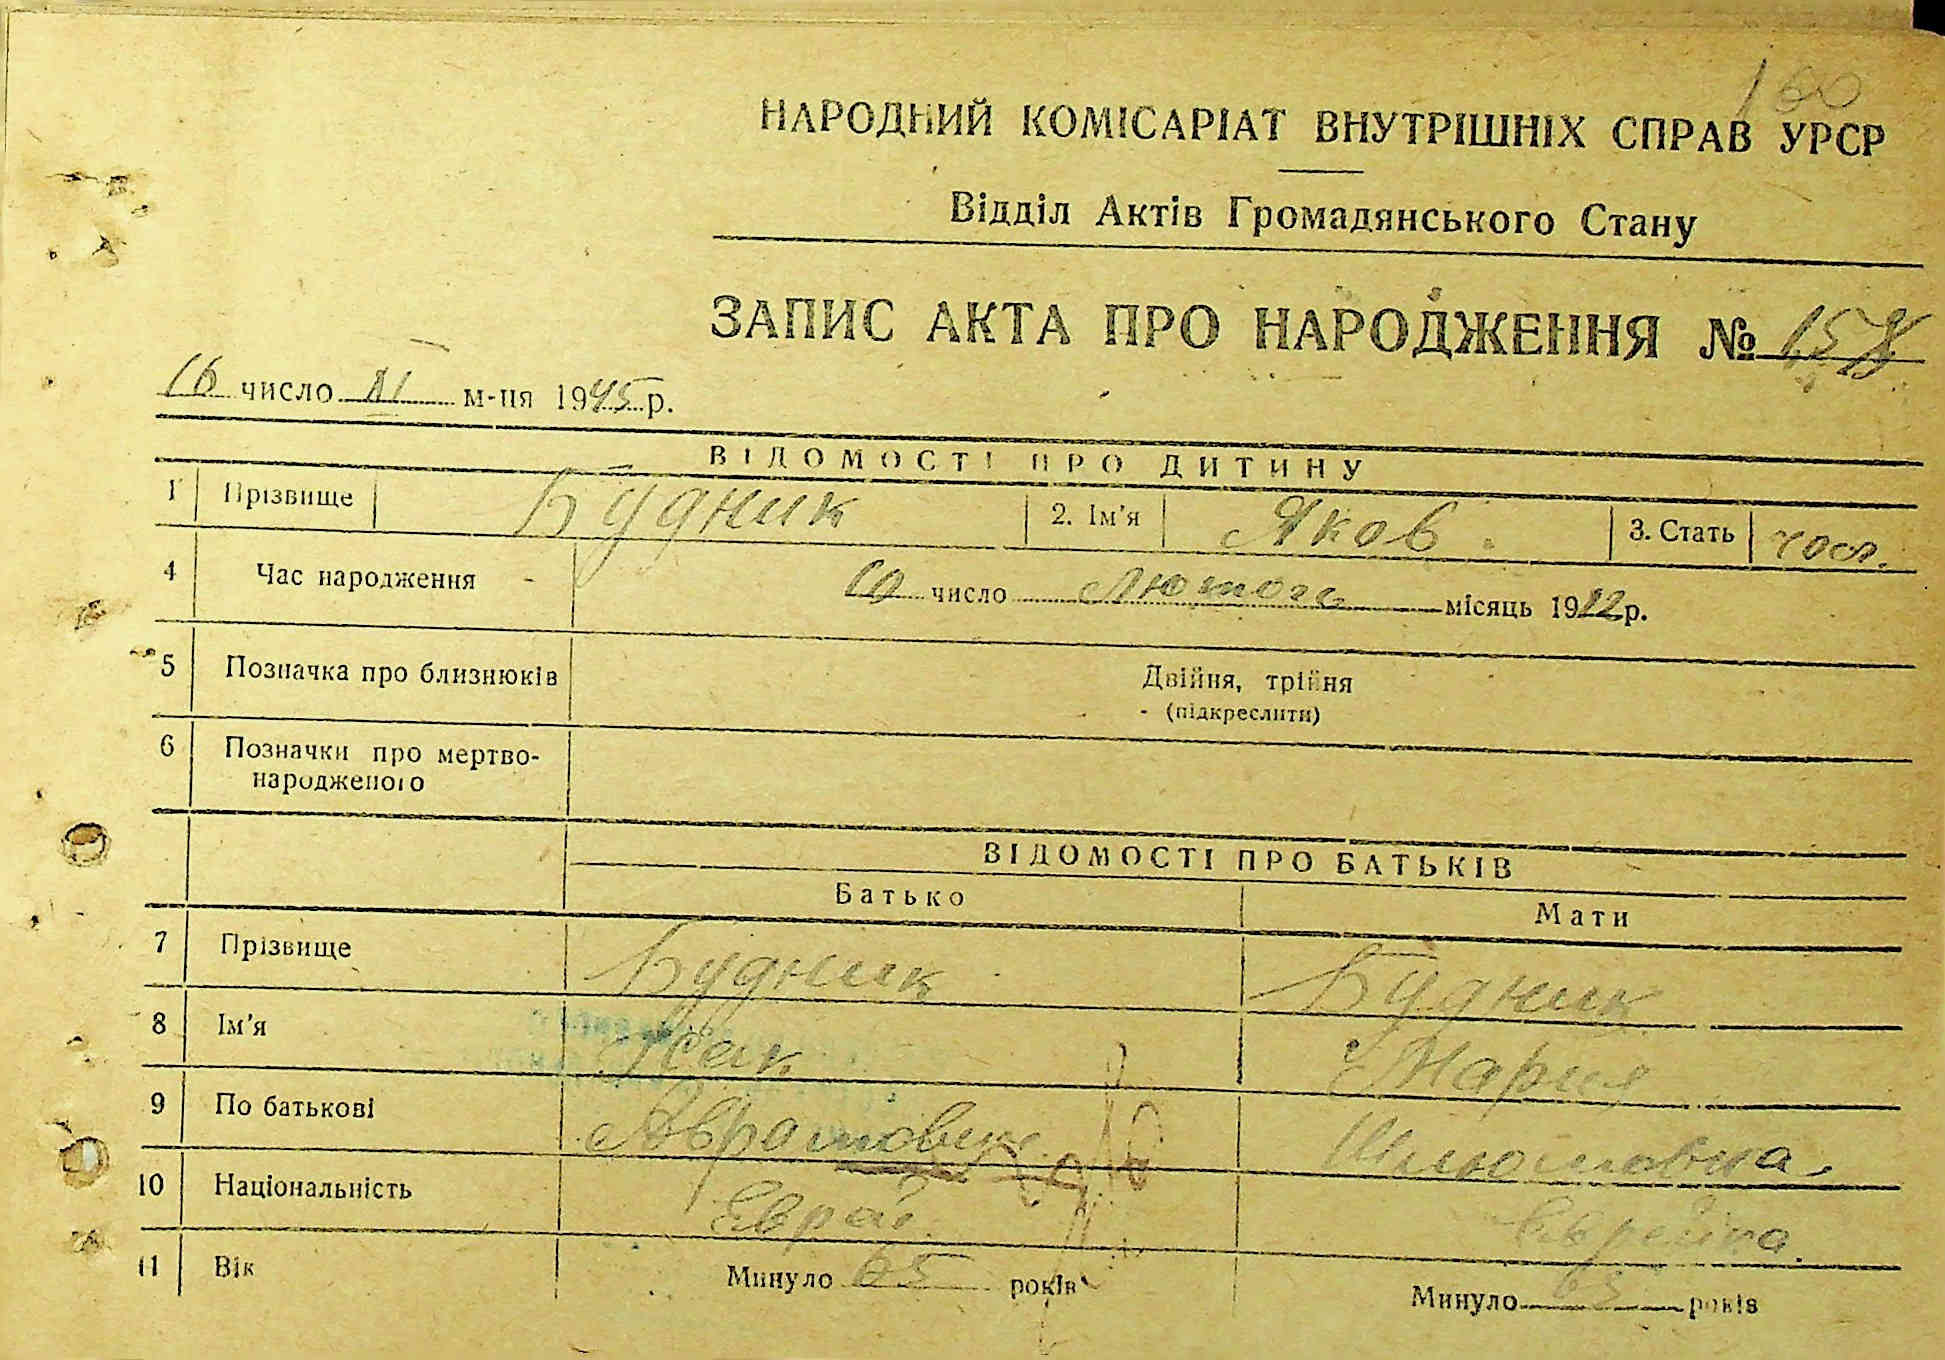 160
НАРОДНИЙ КОМІСАРІАТ ВНУТРІШНІХ СПРАВ УРСР
Відділ Актів Громадянського Стану
ЗАПИС АКТА ПРО НАРОДЖЕННЯ № 158
16 число XI м-ця 1945 р.
ВІДОМОСТІ ПРО ДИТИНУ
1 Прізвище Будник 2. Ім'я Яков. 3. Стать чол.
4 Час народження 10 число Лютого місяць 1912 р.
5 Позначка про близнюків Двійня, трійня
(підкреслити)
6 Позначки про мертво-
народженого
ВІДОМОСТІ ПРО БАТЬКІВ
Батько Мати
7 Прізвище Будник Будник
8 Ім'я Исак Мария
9 По батькові Аврамович Шлюмовна
10 Національність Еврей Еврейка
11 Вік Минуло 65 років Минуло 63 років